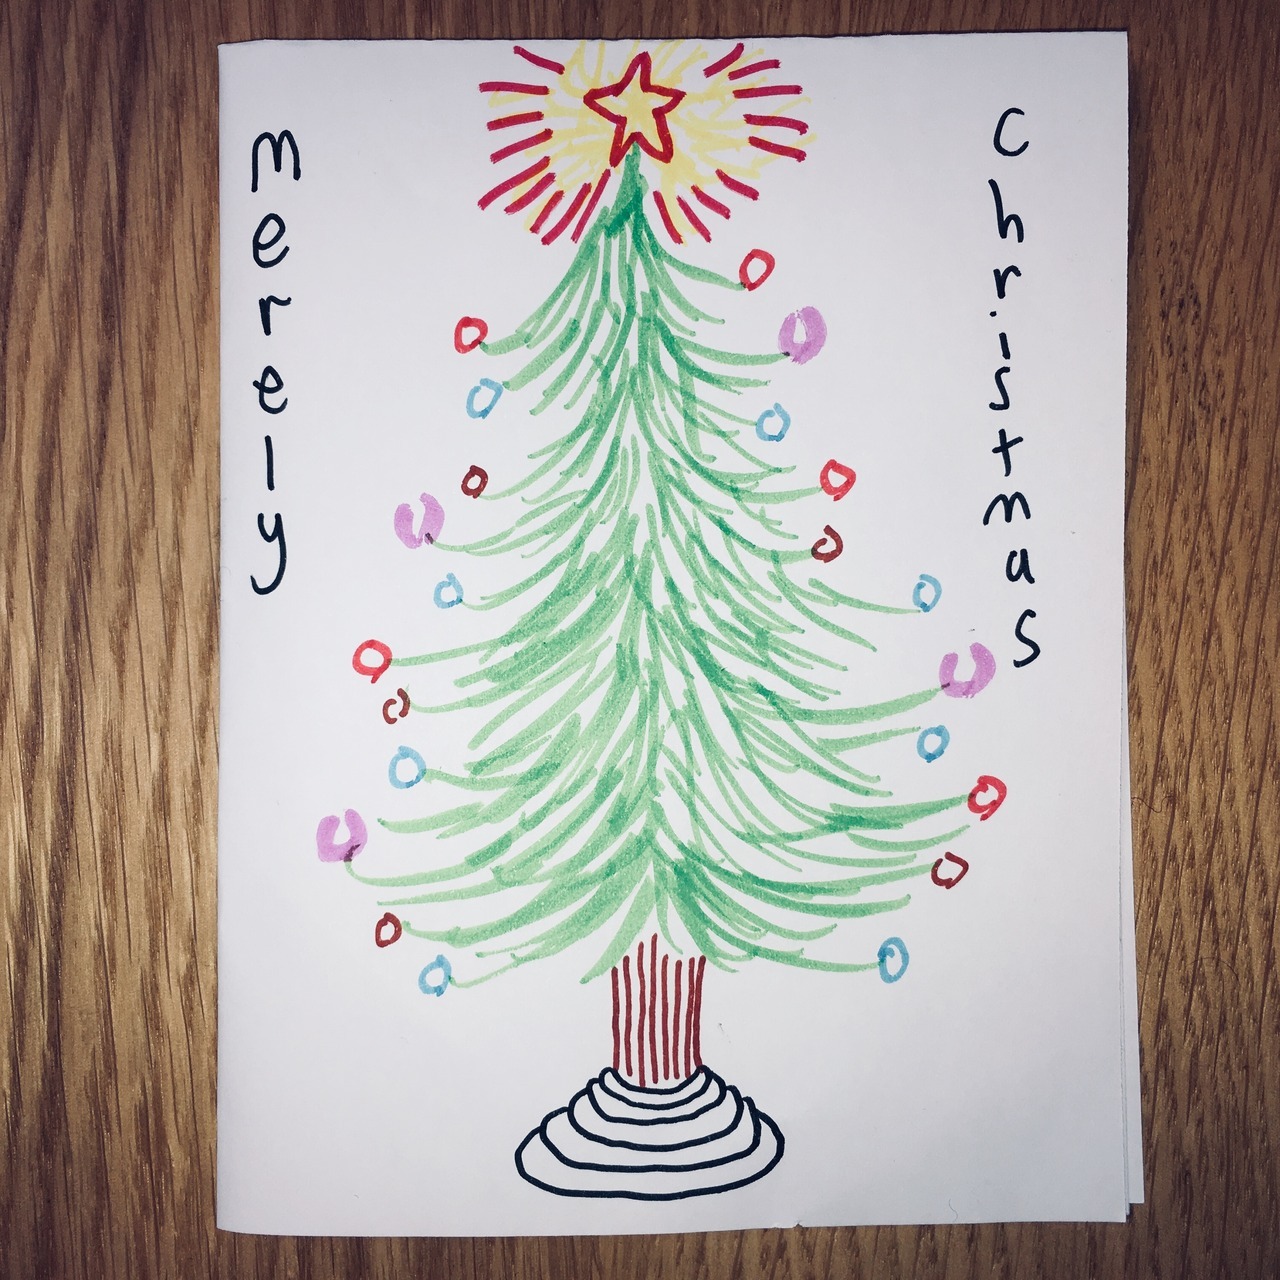 merely
christmas